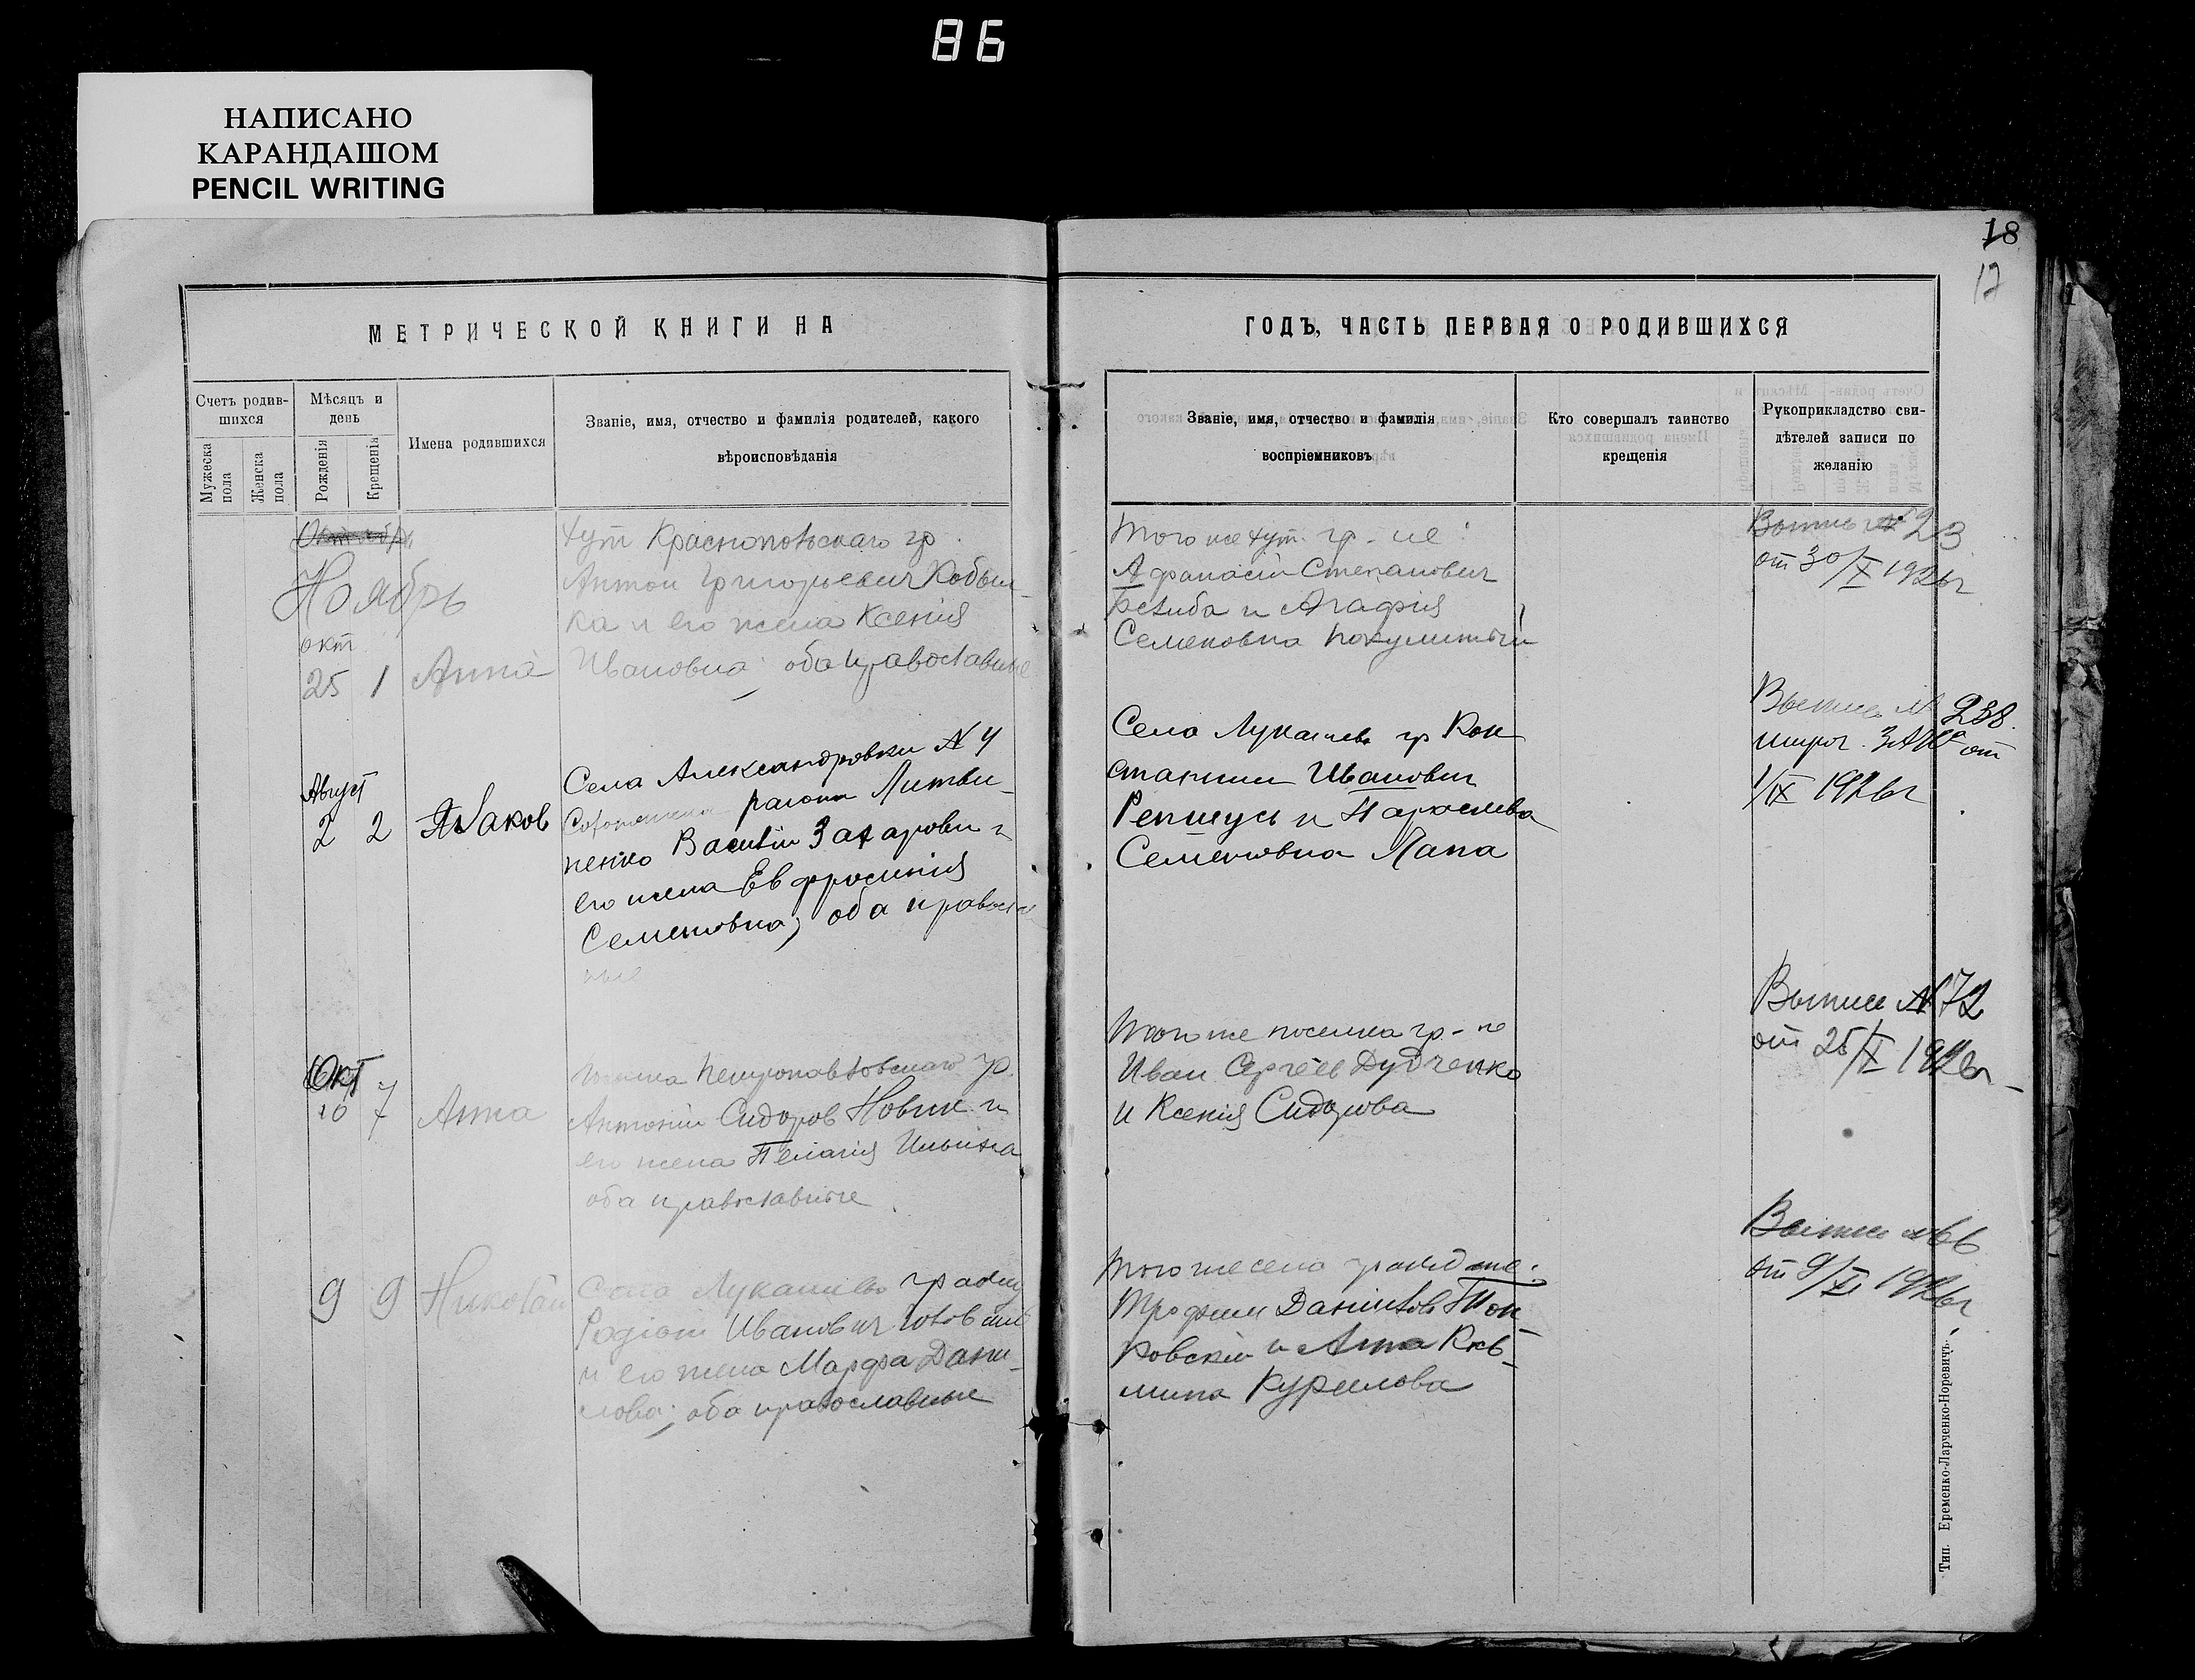 86
НАПИСАНО
КАРАНДАШОМ
PENCIL WRITING
18
17
МЕТРИЧЕСКОЙ КНИГИ НА
ГОДЪ, ЧАСТЬ ПЕРВАЯ О РОДИВШИХСЯ
Счетъ родив-
шихся
Мужеска
пола
Женска
пола
Мѣсяцъ и
день
Рожденія
Крещенія
Имена родавшихся
Званіе, имя, отчество и фамилія родителей, какого
вѣроисповѣданія
Званіе, имя, отчество и фамилія
воспріемниковъ
Кто совершалъ таинство
крещенія
Рукоприкладство сви-
дѣтелей записи по
желанію
Ноябрь
окт
25 1 Анна
хут Краснопольскаго гр.
Антон Григорьевич Кобыл-
ка и его жена Ксенія
Ивановна; оба православные
того же хут. гр-не:
Афанасій Степанович
и Агафія
Семеновна
Выпись № 23
от 30/X 1926г
Август
2 2 Яков
Села Александровки № 4
района Литви-
ненко Василій Захарович и
его жена Евфросинія
Семеновна; оба православ
ные
Села Лукашево гр Кон
стантин Иванович
Репшусь и Параскева
Семеновна Лапа
Выпись № 238
ЗАГС от
1/IX 1926г
Окт
10 7 Анна
Петропавловскаго гр.
Антоній Сидоров Новик и
его жена Пелагія Ильина
оба православные
того же поселка гр-не
Иван Сергеев Дудченко
и Ксенія Сидорова
Выпись № 72
от 25/X 1926г
9 9 Николай
Села Лукашево гражд
Родіон Иванович
и его жена Марфа Дани-
лова; оба православные
того же села граждане:
Трофим Данилов
ровскій и Анна Кость-
мина Курилова
Выпись № 66
от 9/XI 1926г
Тип. Еременко-Ларченко-Норевичъ.